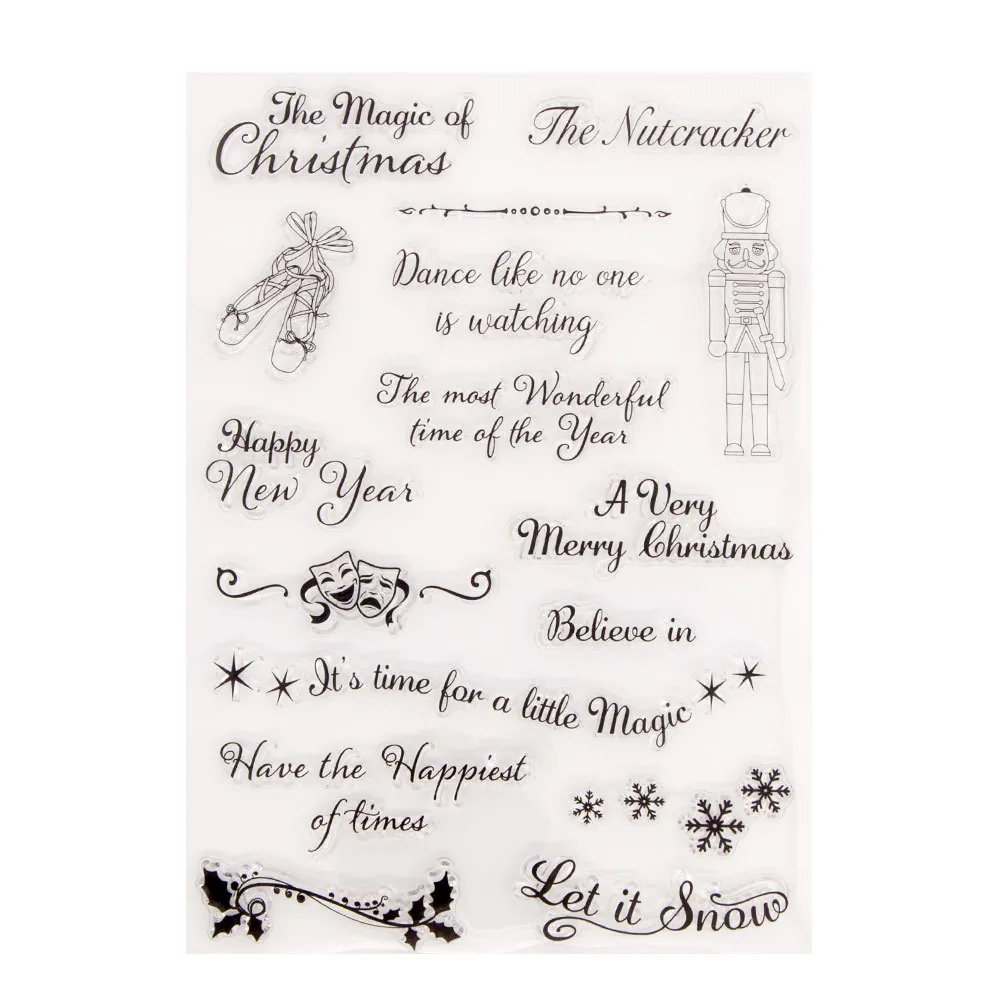 The Magic of
Christmas
The Nutcracker
Dance like no one
is watching
The most Wonderful
time of the Year
Happy
New Year
A Very
Merry Christmas
Believe in
It's time for a little Magic
Have the Happiest
of times
Let it Snow